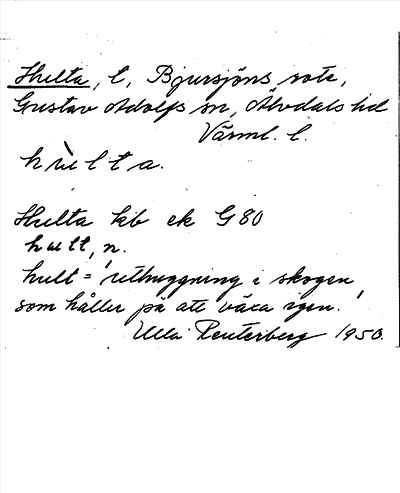 Hulta, l, Bjursjöns rote,
Gustav Adolfs sn, Älvdals hd
Värml. l.
hùlta.
Hulta kb ek G 80
hult, n.
hult = 'uthuggning i skogen,
som håller på att växa igen.'
Ulla Reuterberg 1950.